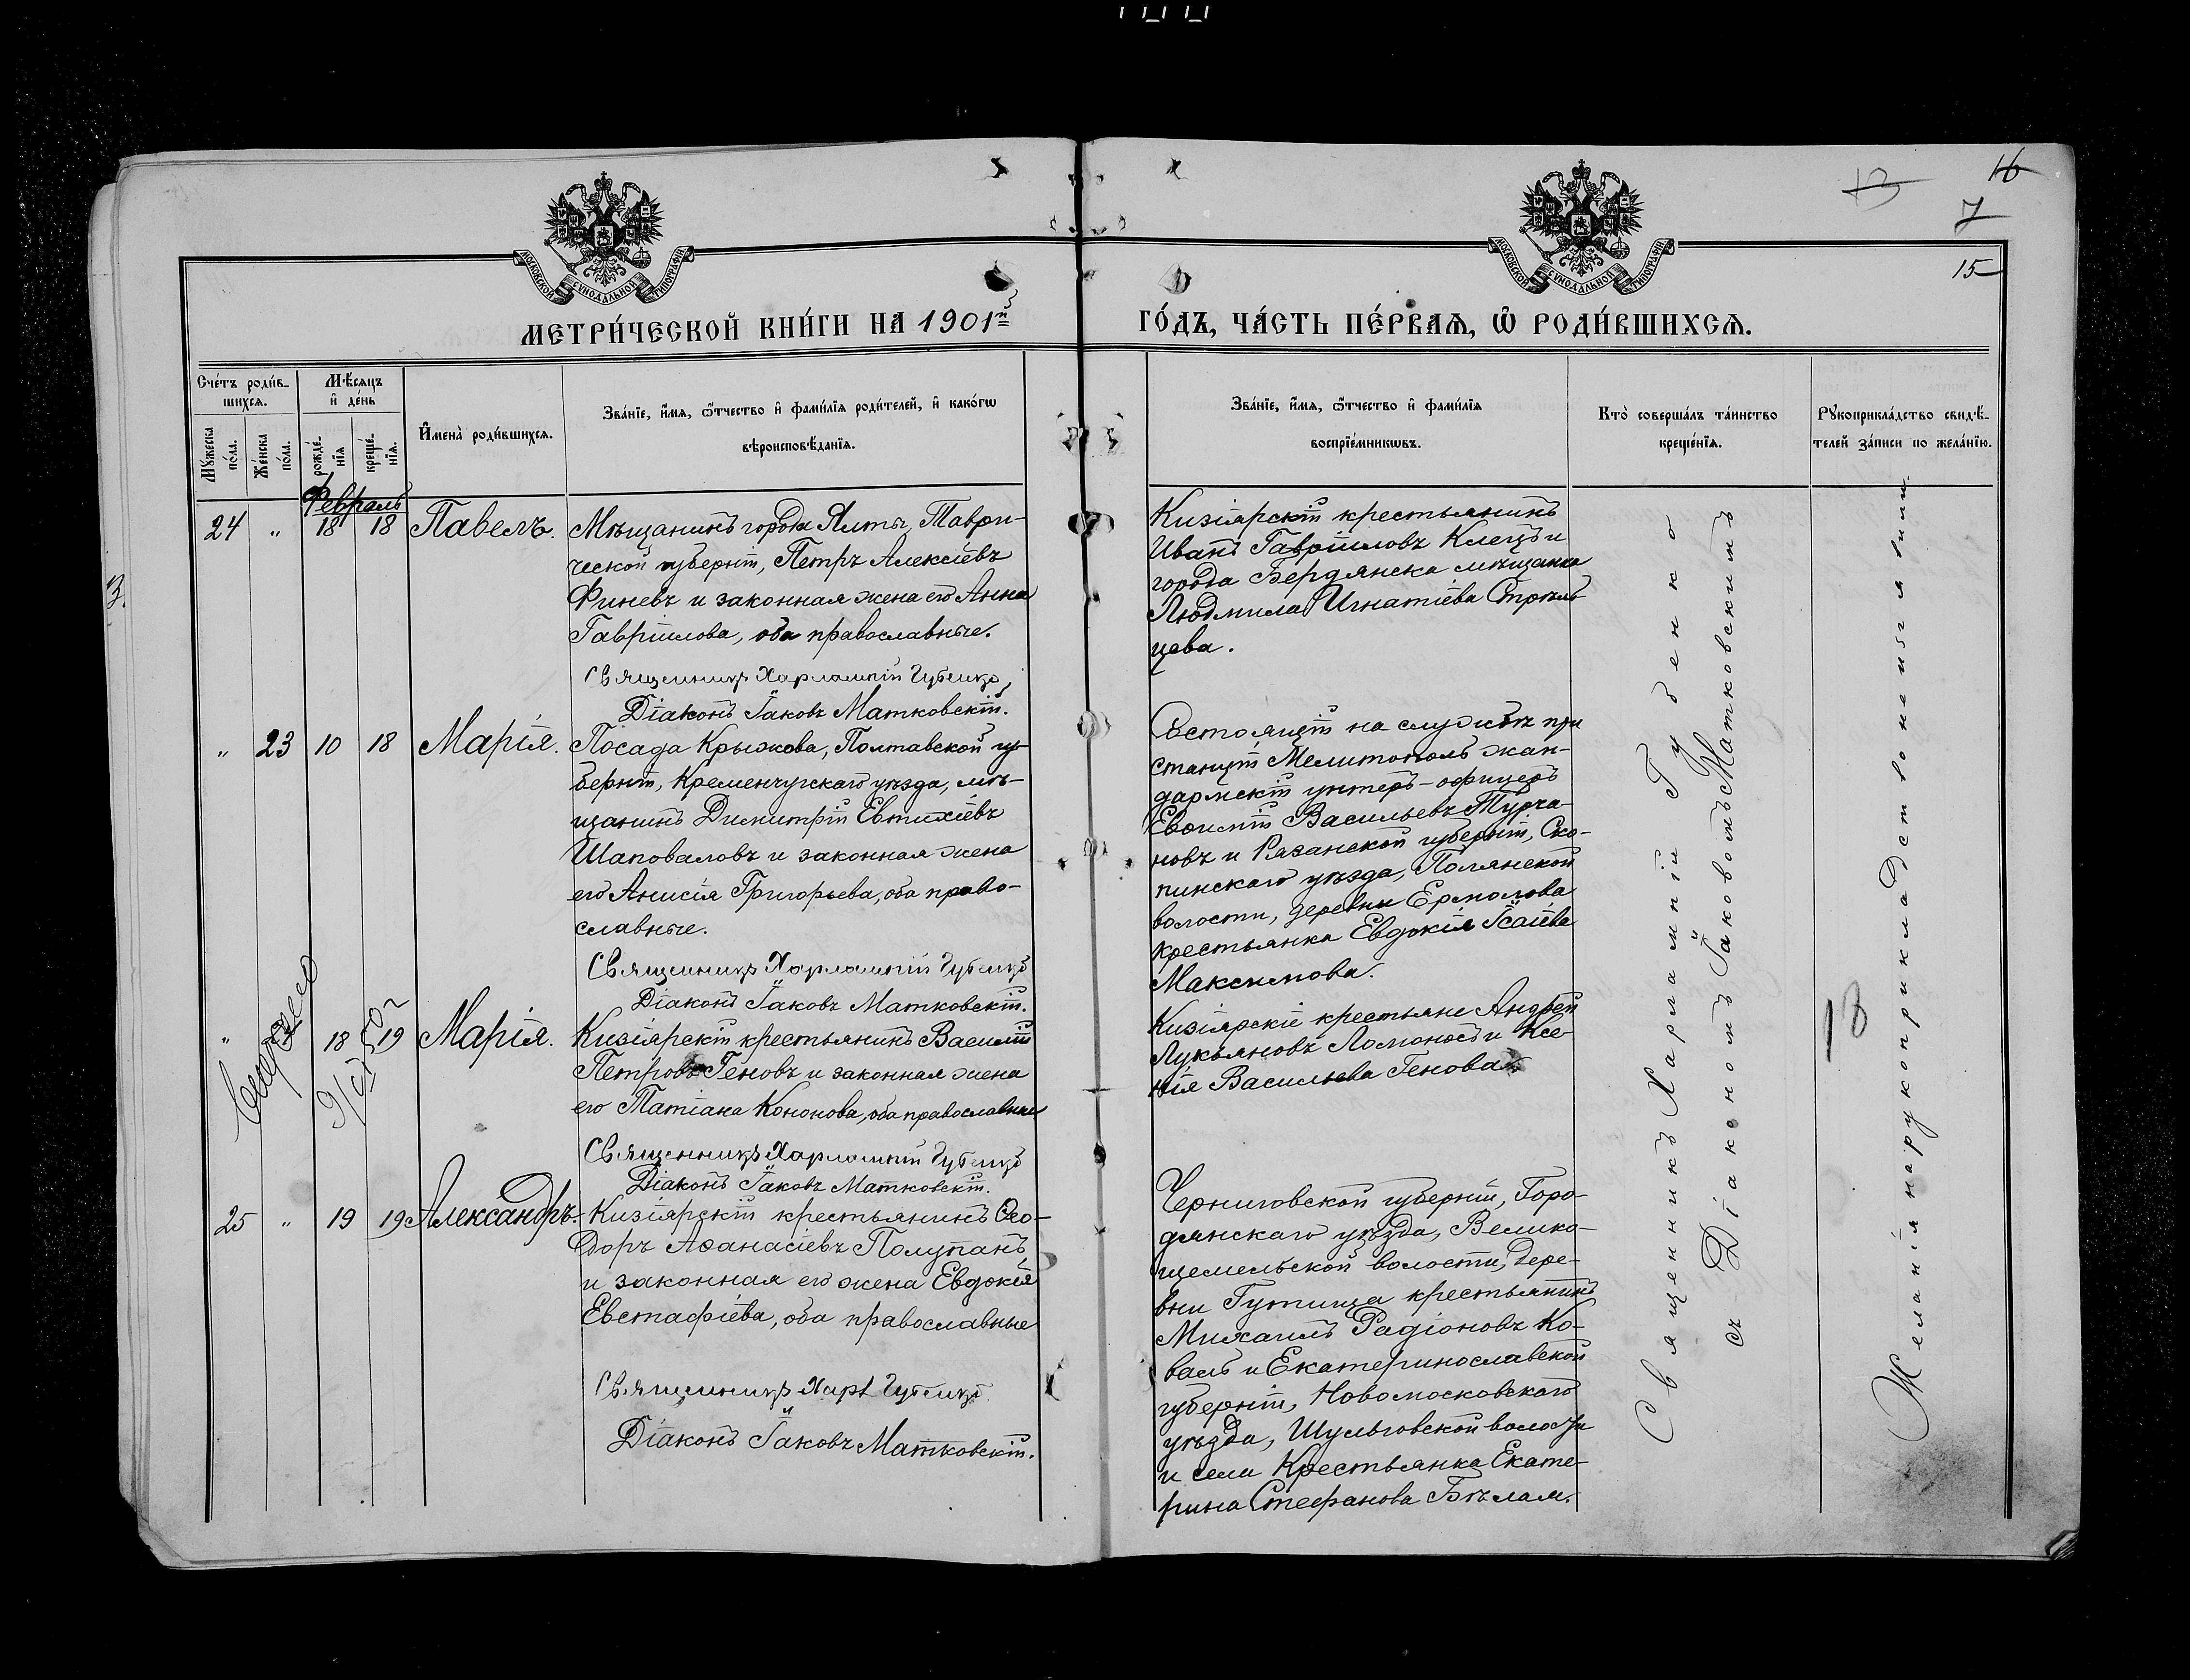 16
13
7
15
МОСКОВСКОЙ СѴНОДАЛЬНОЙ ТИПОГРАФІИ
МОСКОВСКОЙ СѴНОДАЛЬНОЙ ТИПОГРАФІИ
МЕТРИ́ЧЕСКОЙ КНИ́ГИ НА 1901й
ГО́ДЪ, ЧА́СТЬ ПЕ́РВАѦ, Ѡ РОДИ́ВШИХСѦ.
Сче́тъ роди́в-
шихсѧ.
Мѣ́сѧцъ
и҆ де́нь
Мꙋ́жеска
по́ла.
Же́нска
по́ла.
рожде́-
нїѧ
креще́-
нїѧ.
И҆мена̀ роди́вшихсѧ.
Зва́нїе, и҆́мѧ, ѻ҆́тчество и҆ фами́лїѧ роди́телей, и҆ како́гѡ
вѣроисповѣ́данїѧ.
Зва́нїе, и҆́мѧ, ѻ҆́тчество и҆ фами́лїѧ
воспрїе́мникѡвъ.
Кто̀ соверша́лъ та́инство
креще́нїѧ.
Рꙋкоприкла́дство свидѣ́-
телей за́писи по жела́нїю.
Февраль
24 " 18 18 Павелъ.
Мѣщанинъ города Ялты, Таври-
ческой губерніи, Петръ Алексіевъ
Финевъ и законная жена его Анна
Гавріилова, оба православные.
Священникъ Харлампій Губенко
Діаконъ Іаковъ Матковскій.
Кизіярскій крестьянинъ
Иванъ Гавріиловъ Клецъ и
города Бердянска мѣщанка
Людмила Игнатіева Стрѣль-
цева.
" 23 10 18 Марія.
Посада Крыжова, Полтавской гу-
берніи, Кременчугскаго уѣзда, мѣ-
щанинъ Димитрій Евтихіевъ
Шаповаловъ и законная жена
его Анисія Григорьева, оба право-
славные.
Священникъ Харлампій Губенко
Діаконъ Іаковъ Матковскій.
Состоящій на службѣ при
станціи Мелитополь жан-
дармскій унтеръ-офицеръ
Евѳимій Васильевъ Турча-
новъ и Рязанской губерніи, Ско-
пинскаго уѣзда, Полянской
волости, деревни Ермолова
крестьянка Евдокія Исаіева
Максимова.
" 18 19 Марія.
Кизіярскій крестьянинъ Василій
Петровъ Геновъ и законная жена
его Татіана Кононова, оба православные
Священникъ Харлампій Губенко
Діаконъ Іаковъ Матковскій.
Кизіярскіе крестьяне Андрей
Лукьяновъ Ломоносъ и Ксе-
нія Васильева Генова
25 " 19 19 Александръ.
Кизіярскій крестьянинъ Ѳео-
доръ Аѳанасіевъ Полупанъ
и законная его жена Евдокія
Евстафіева, оба православные
Священникъ Харл Губенко
Діаконъ Іаковъ Матковскій.
Черниговской губерніи, Горо-
днянскаго уѣзда, Велико-
щемельской волости, дере-
вни Гутища крестьянинъ
Михаилъ Радіоновъ Ко-
валь и Екатеринославской
губерніи, Новомосковскаго
уѣзда, Шульговской волости
и села Крестьянка Екате-
рина Стефанова Бѣлая.
Священникъ Харлампій Губенко
съ Діакономъ Іаковомъ Матковскимъ
18
Желанія на рукоприкладство не изъявили.